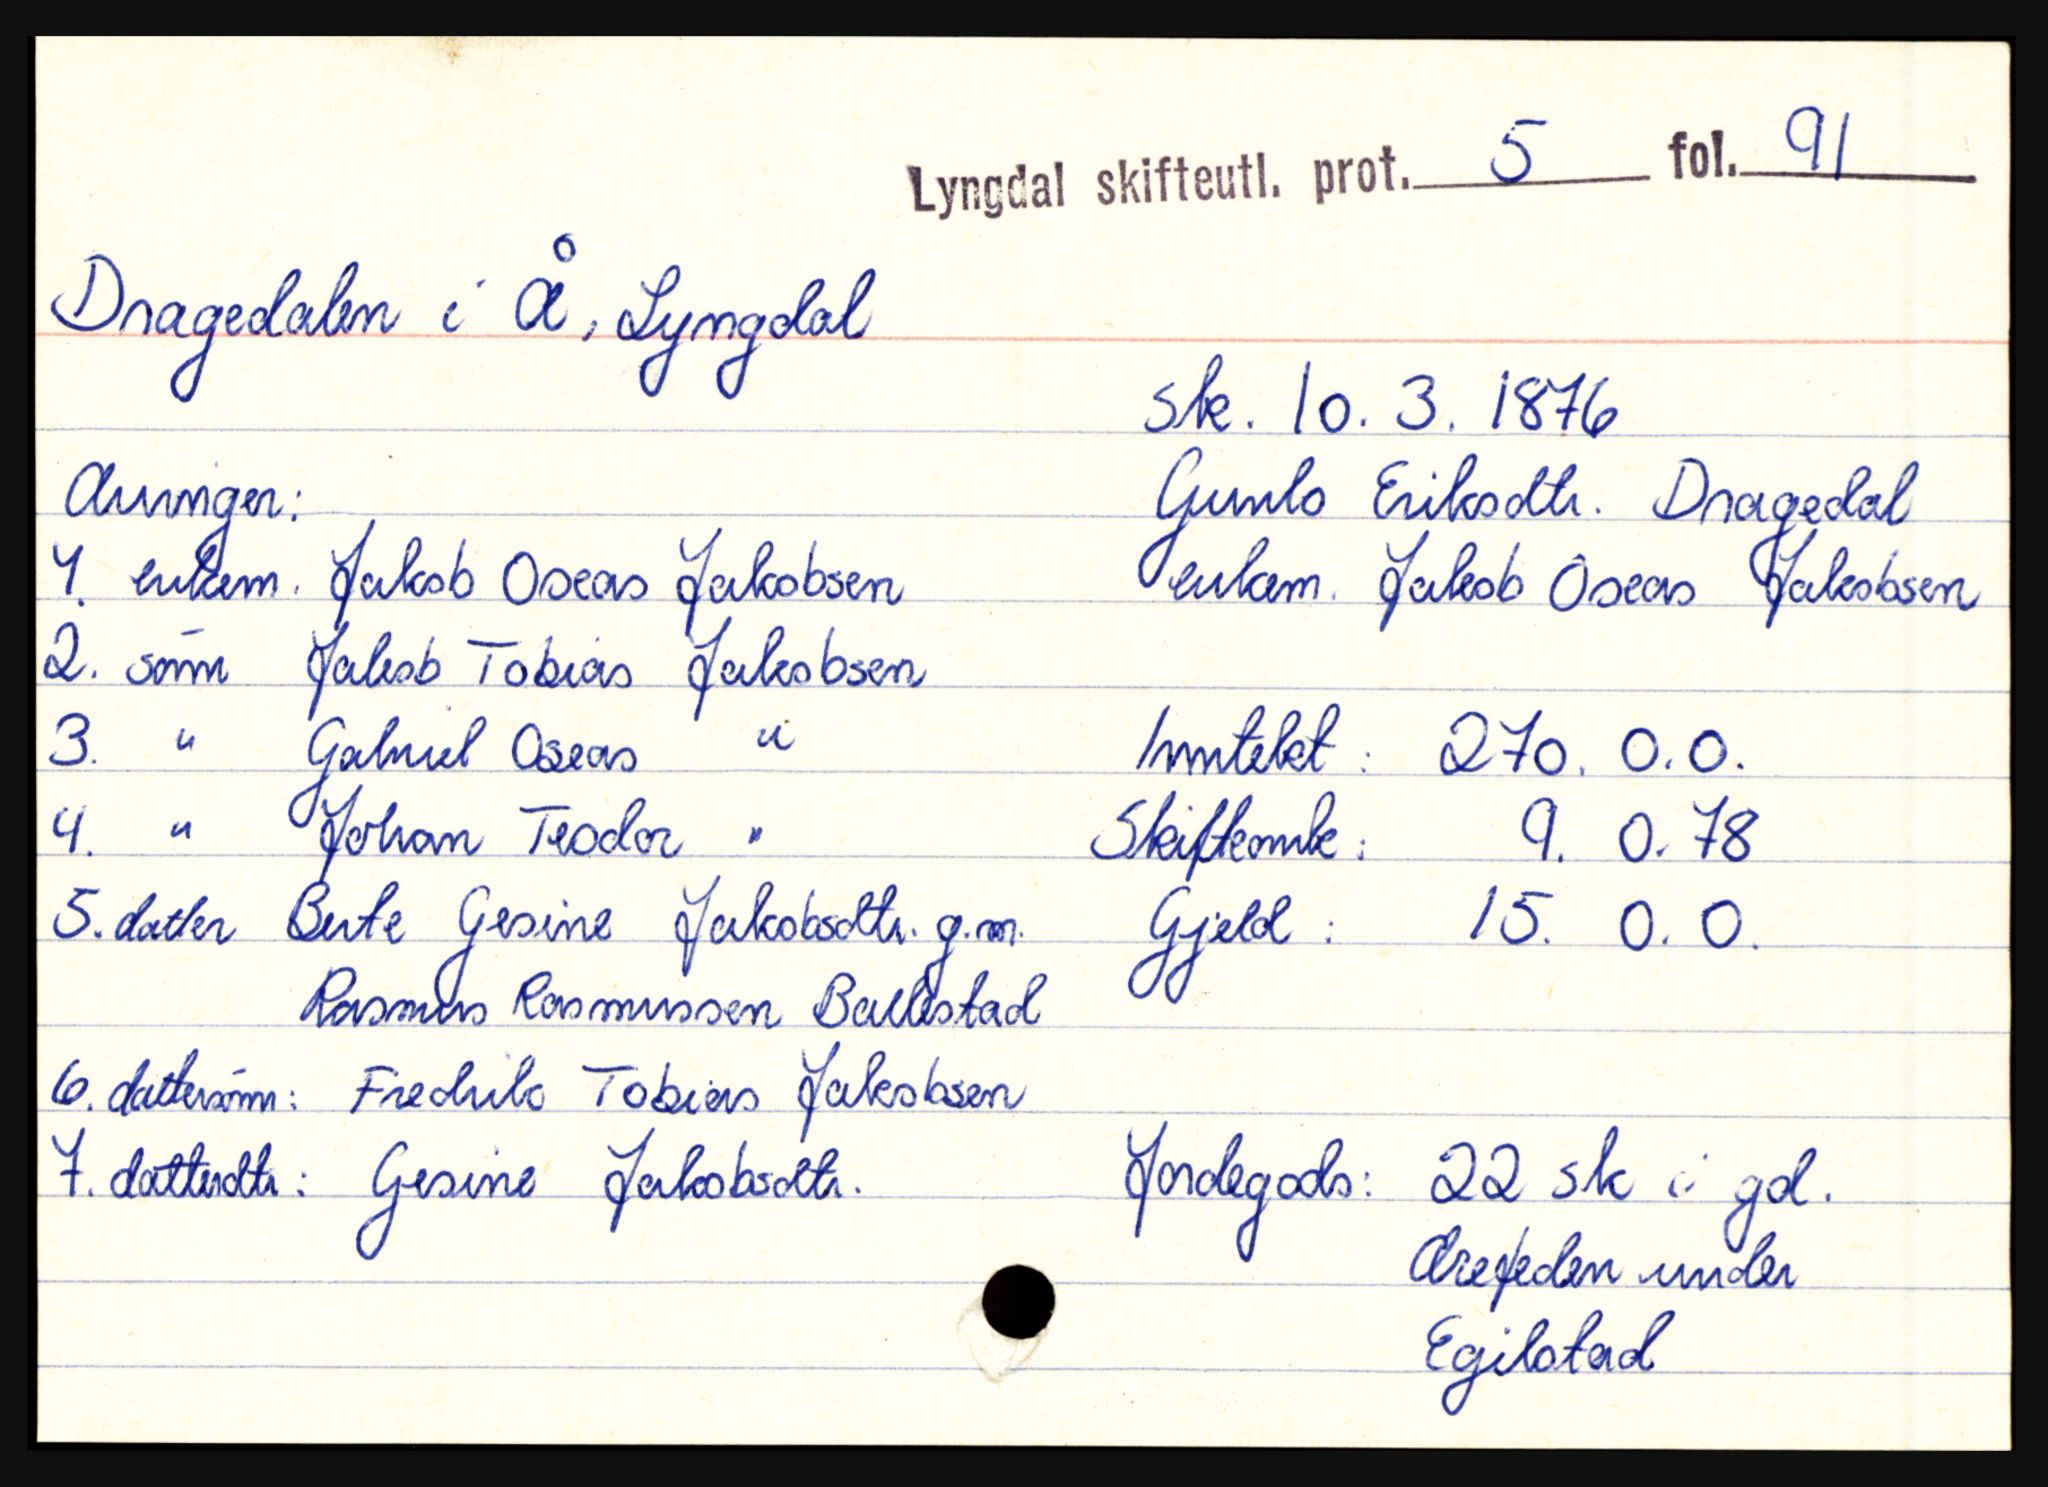 Lyngdal skifteutl. prot. 5 fol. 91
Dragedalen i Å, Lyngdal
sk. 10. 3. 1876
Gunlo Eriksdtr. Dragedal
enkem. Jakob Oseas Jakobsen
Arvinger:
1. enkem. Jakob Oseas Jakobsen
2. sönn Jakob Tobias Jakobsen
3. " Gabriel Oseas "
4. " Johan Teodor "
5. datter Berte Gesine Jakobsdtr. g.m.
Rasmus Rasmussen Ballestad
6. dattersönn: Fredrik Tobias Jakobsen
7. datterdtr: Gesine Jakobsdtr.
Inntekt: 270. 0. 0.
Skifteomk: 9. 0. 78
Gjeld: 15. 0. 0.
Jordegods: 22 sk i gd.
under
Egilstad